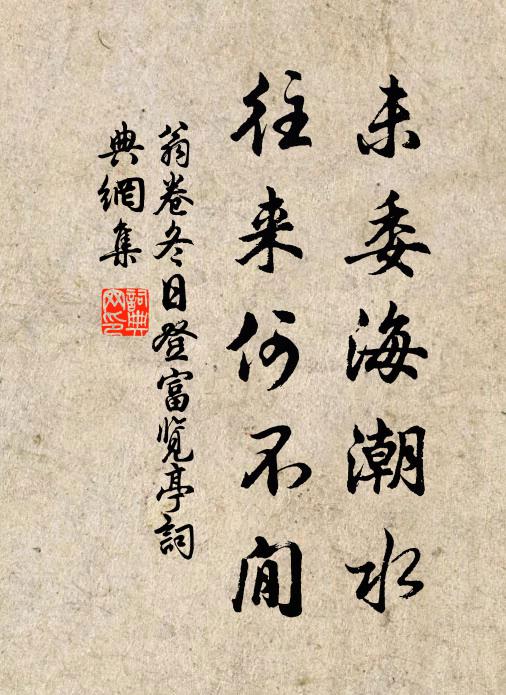 未委海潮水
往来何不閒
翁卷冬日登富览亭詞
典網集
詞典
网印